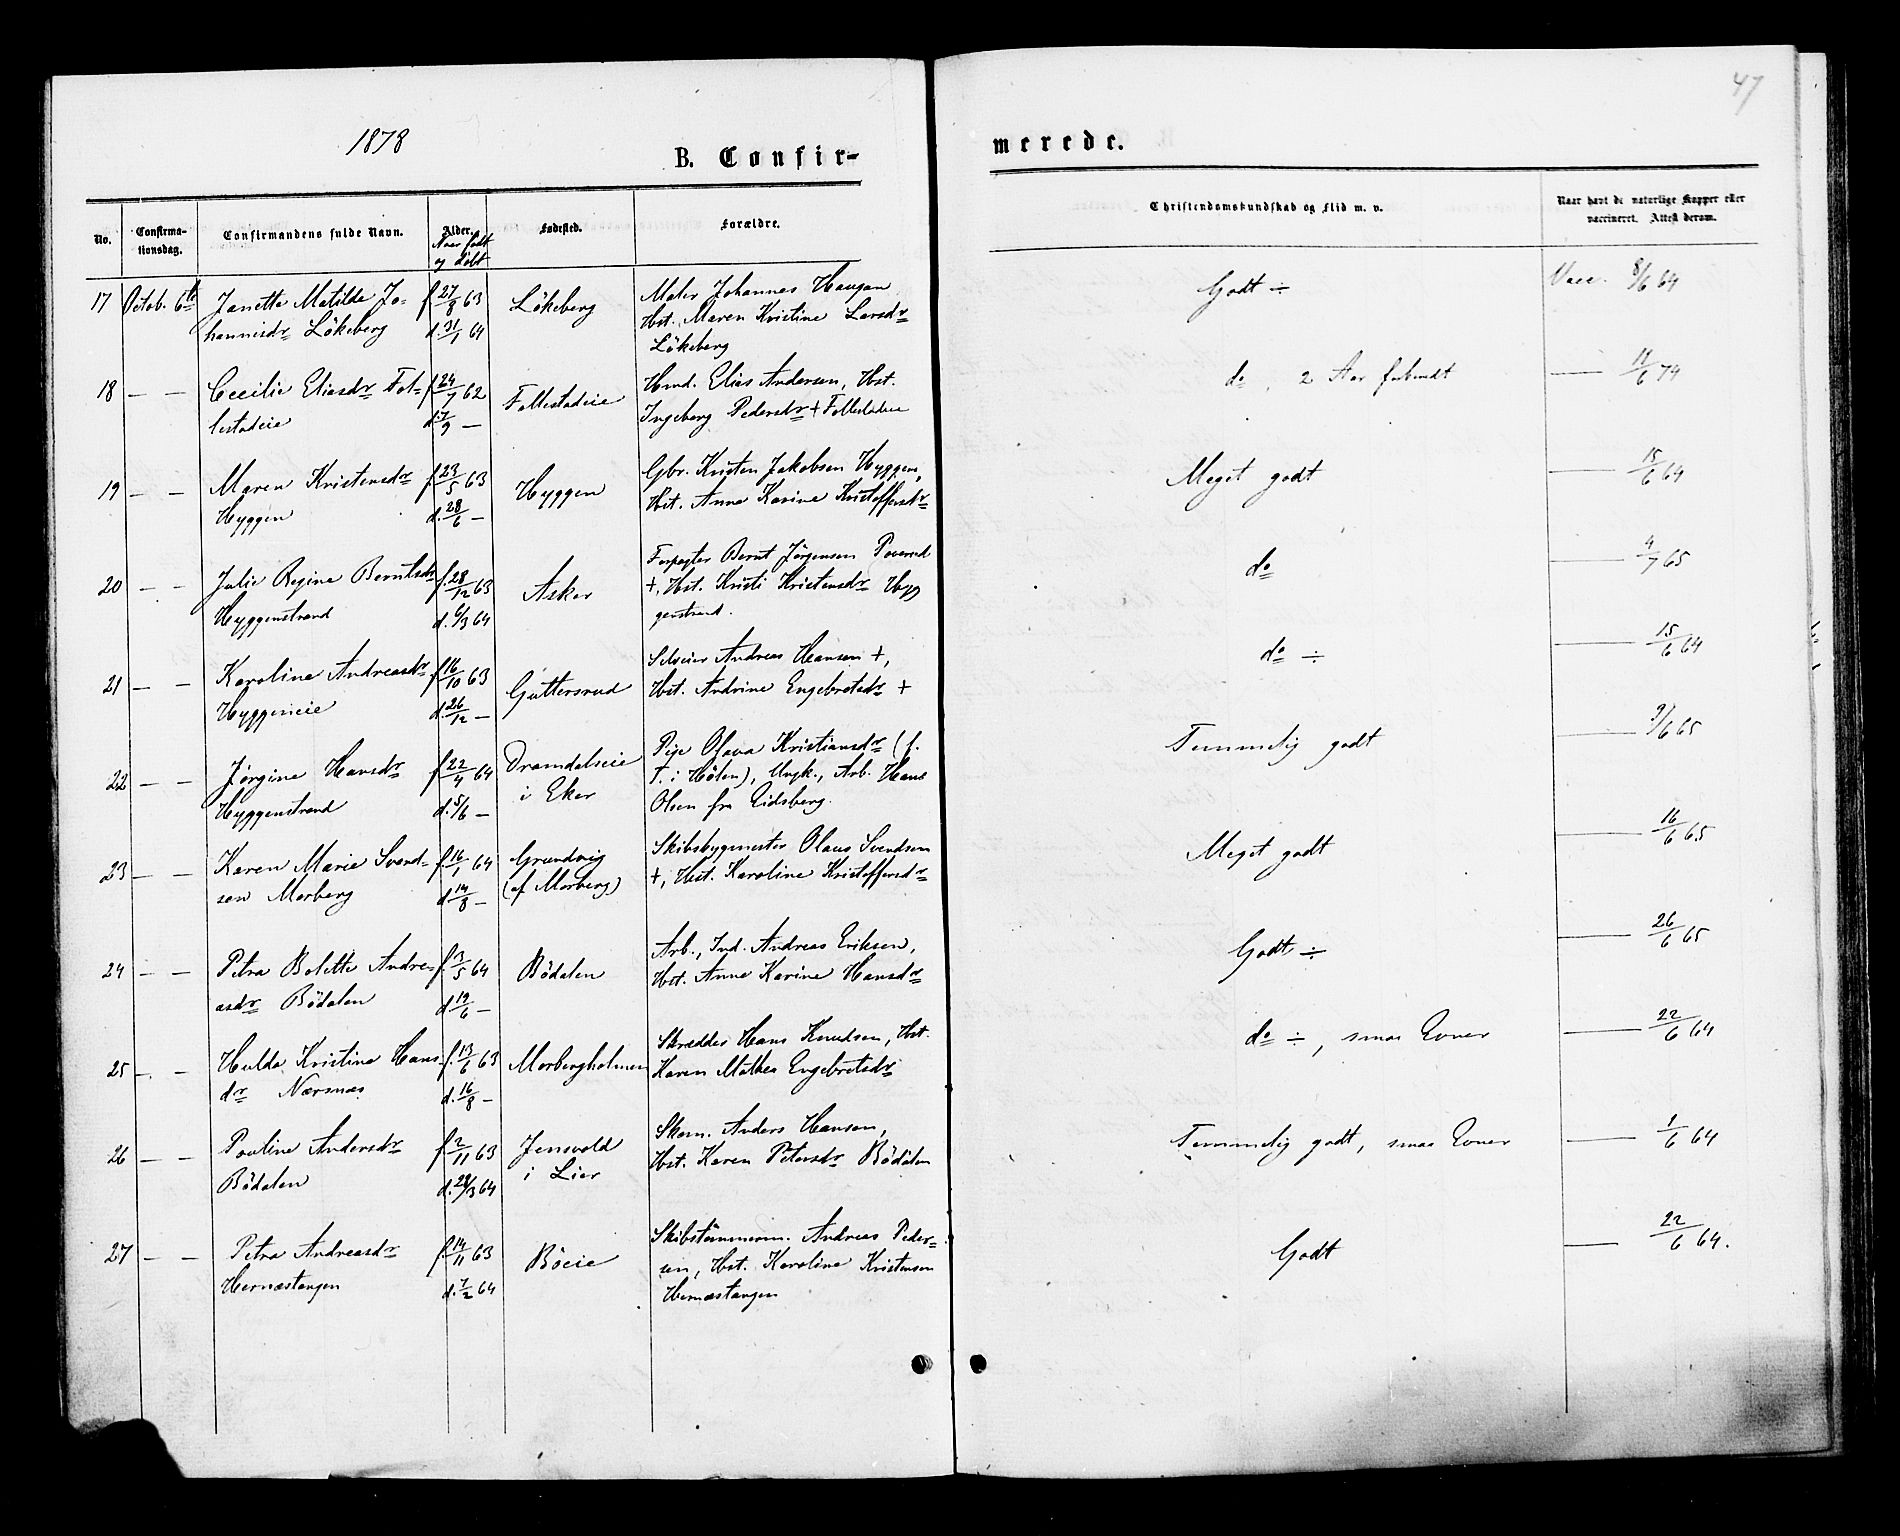 47
1878
B. Confir-
merede.
No.
Confirma-
tionsdag.
Confirmandens fulde Navn.
Alder.
Naar født
og døbt
Fødested.
Forældre.
Christendomskundskab og Flid m. v.
Naar havt de naturlige Kopper eller
vaccineret. Attest derom.
17 Octob. 6te Janette Matilde Jo- f. 27/8 63 Lökeberg Maler Johannes Haugan Godt ÷ Vacc. 8/6 64
hannisdr Lökeberg d. 31/1 64 Hst. Maren Kristine Larsdr
Lökeberg
18 — — Cecilie Eliasdr Fol- f. 24/7 62 Follestadeie Hmd. Elias Andersen, Hst. do, 2 Aar — 11/6 74
lestadeie d. 7/9 — Ingeborg Pedersdr + Follestadeie
19 — — Maren Kristensdr f. 23/5 63 Hyggen Gbr. Kristen Jakobsen Hyggen, Meget godt — 15/6 64
Hyggen d. 28/6 — Hst. Anne Karine Kristoffersdr
20 — — Julie Regine Berntsdr f. 28/12 63 Asker Forpagter Bernt Jørgensen do — 4/7 65
Hyggenstrand d. 6/3 64 +, Hst. Kristi Kristensdr Hyg
genstrand.
21 — — Karoline Andreasdr f. 16/10 63 Guttersrud Selveier Andreas Hansen +, do ÷ — 15/6 64
Hyggeneie d. 26/12 — Hst. Andrine Engebretsdr +
22 — — Jørgine Hansdr f. 22/4 64 Dramdalseie Pige Olava Kristiansdr (f. Temmelig godt — 9/6 65
Hyggenstrand d. 5/6 — i Eker T. i Hølen), Ungk., Arb. Hans
Olsen fra Eidsberg.
23 — — Karen Marie Svend- f. 16/1 64 Grundvig Skibsbygmester Olaus Svendsen Meget godt — 16/6 65
sen Morberg d. 14/8 — (af Morberg) +, Hst. Karoline Kristoffersdr
24 — — Petra Bolette Andre- f. 3/5 64 Bödalen Arb., Ind. Andreas Eriksen, Godt ÷ — 26/6 65
asdr Bödalen d. 19/6 — Hst. Anne Karine Hansdr
25 — — Hulda Kristine Hans f. 13/6 63 Morbergholmen Skrædder Hans Knudsen, Hst. do ÷, smaa Evner — 22/6 64
dr Nærsnæs d. 16/8 — Karen Mathea Engebretsdr
26 — — Pauline Andersdr f. 2/11 63 Jensvold Skom. Anders Hansen, Temmelig godt, smaa Evner — 1/6 64
Bödalen d. 28/3 64 i Lier Hst. Karen Petersdr Bödalen
27 — — Petra Andreasdr f. 14/11 63 Böeie Skibstömmerm. Andreas Peder- Godt — 22/6 64.
Hernæstangen d. 7/2 64 sen, Hst. Karoline Kristensen
Hernæstangen